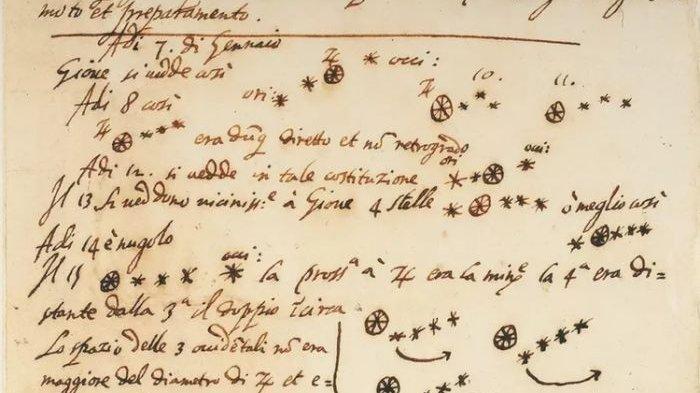 moto et preparamento.
Adi 7. di Gennaio
Giove si vedde così ori: ♃ occi:
Adi 8 così ♃ 10. 11.
♃ era dūq diretto et nō retrogrado
Adi 12. si vedde in tale costituzione ori occi:
Il 13 si veddono vicinissᵉ à Giove 4 stelle ò meglio così
Adi 14 è nugolo
Il 15 occi: la prossᵃ à ♃ era la minᵉ la 4ᵃ era di=
stante dalla 3ᵃ il doppio īcirca
Lo spazio delle 3 occidētali nō era
maggiore del diametro di ♃ et e=